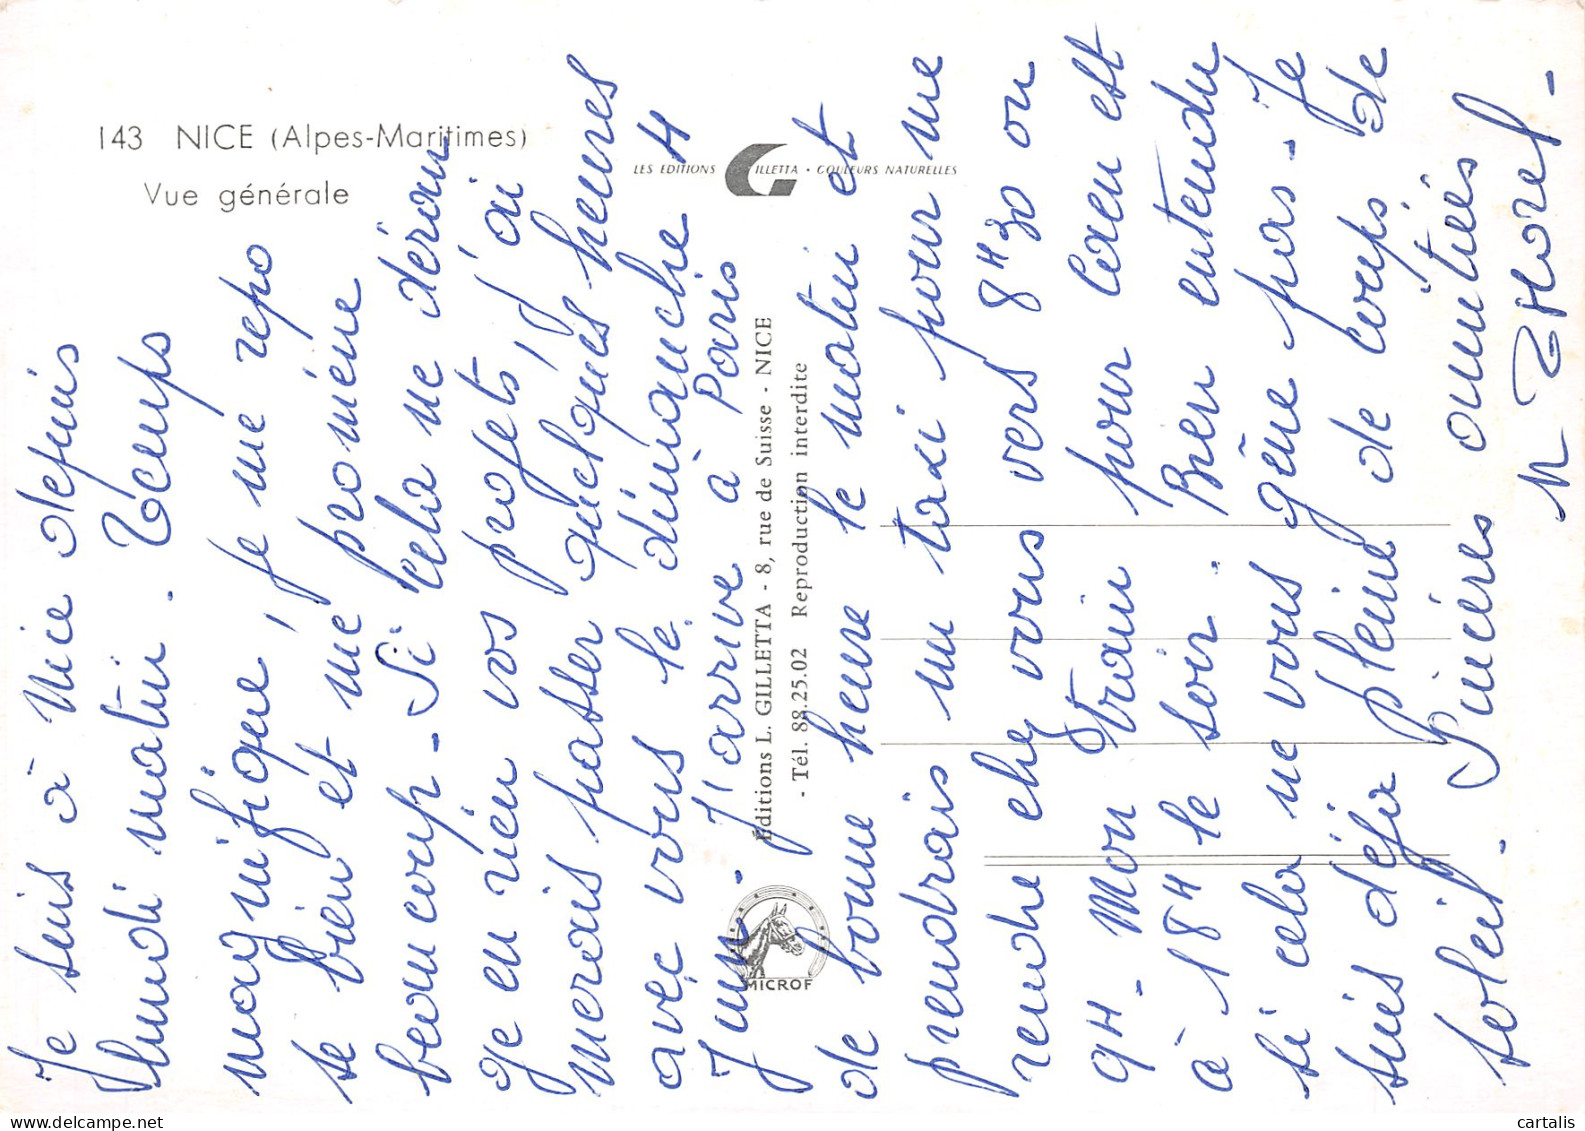 143 NICE (Alpes-Maritimes)
Vue générale
LES EDITIONS GILLETTA · COULEURS NATURELLES
Éditions L. GILLETTA - 8, rue de Suisse - NICE
- Tél. 88.25.02 Reproduction interdite
MICROF
Je suis à Nice depuis
lundi matin. Temps
magnifique, je me repo
se bien et me promène
beaucoup - Si cela ne déran
ge en rien vos projets, j'ai
merais passer quelques heures
avec vous le dimanche 4
Juin. J'arrive à Paris
de bonne heure le matin et
prendrais un taxi pour me
rendre chez vous vers 8H30 ou
9H - Mon train pour Caen est
à 18H le soir. Bien entendu
si cela ne vous gêne pas - Je
suis déjà pleine de coups de
soleil. Sincères amitiés
M
cartalis